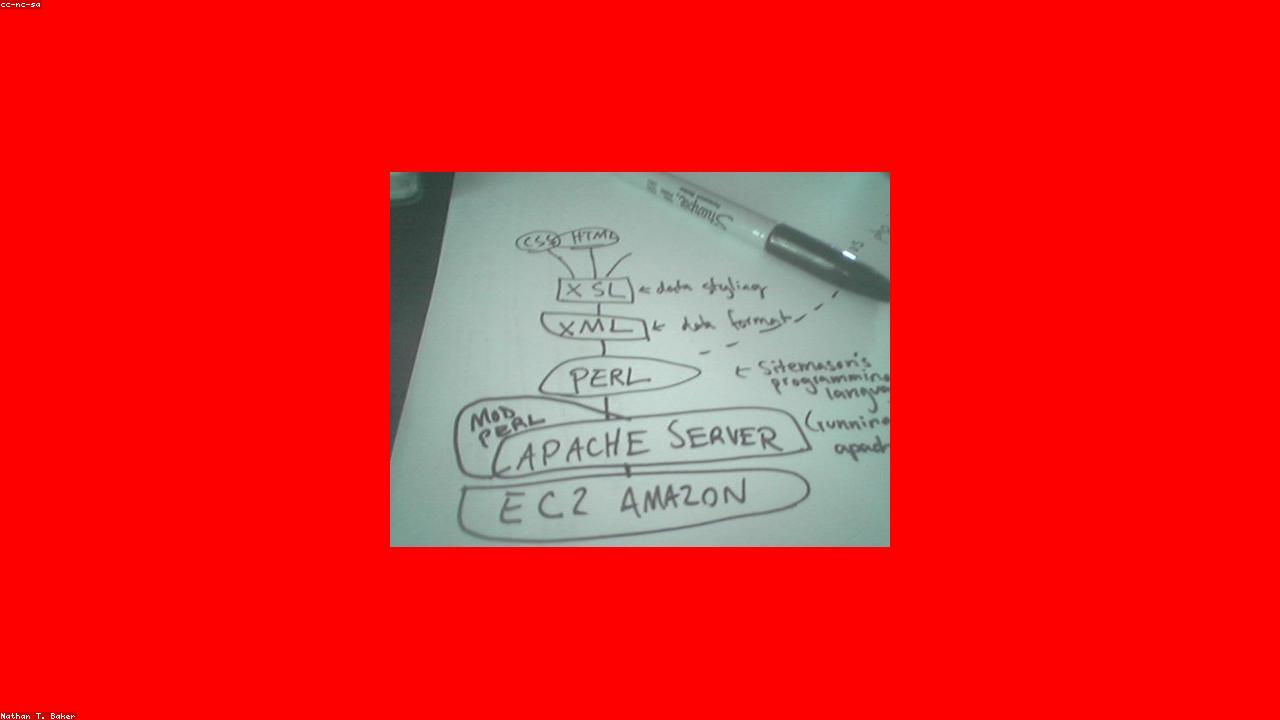 cc-nc-sa
Sharpie
CSS HTML
XSL ← data styling
XML ← data format
PERL ← Sitemason's
programming
langua
MOD
PERL
APACHE SERVER
(running
apach
EC2 AMAZON
Nathan T. Baker